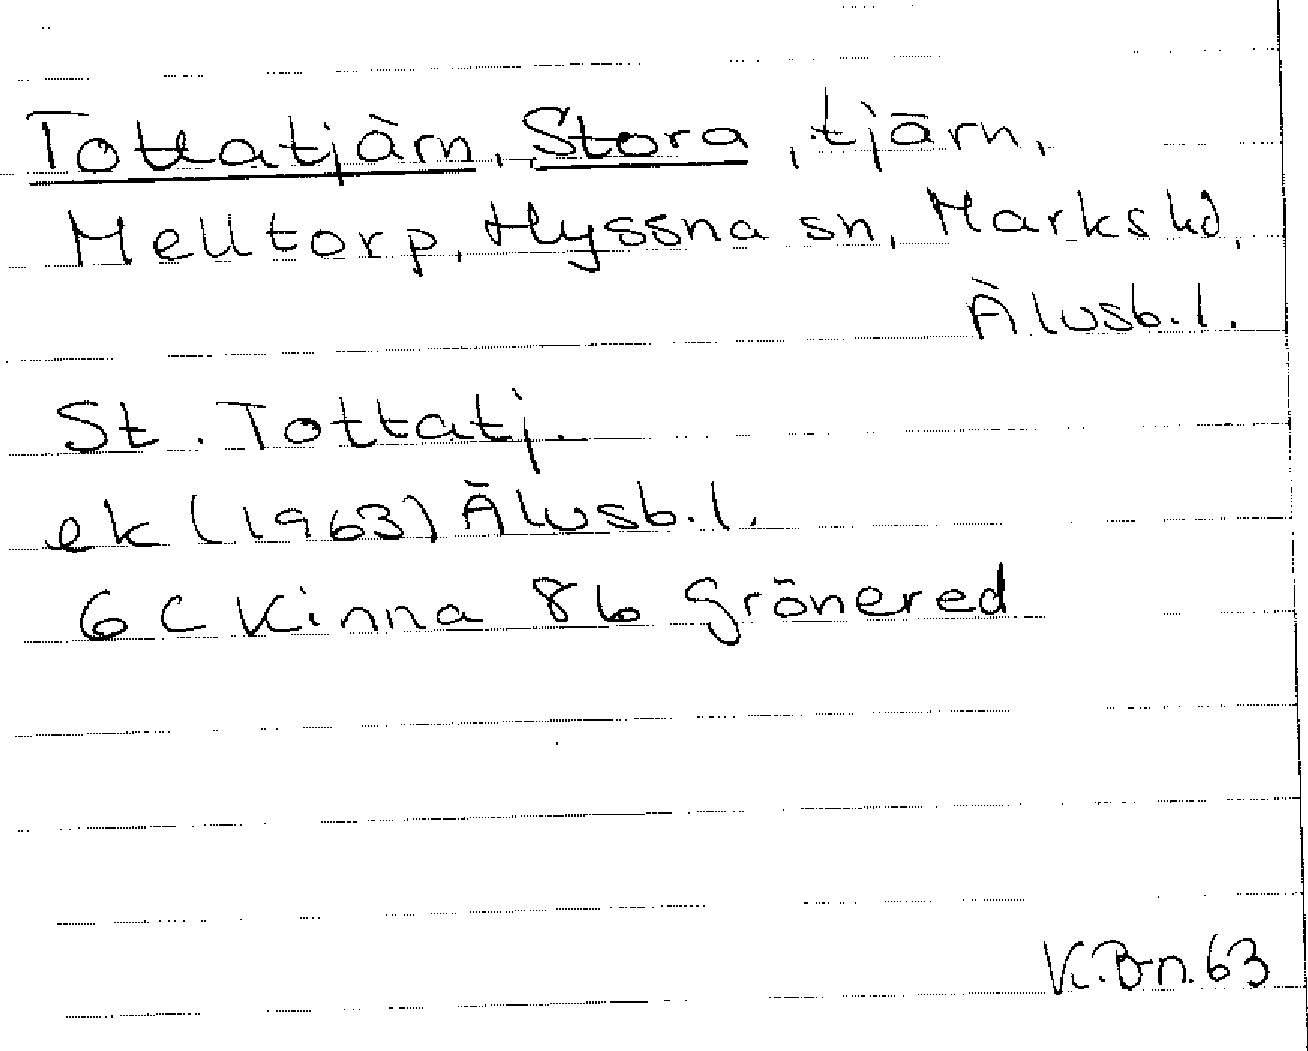 Tottatjärn, Stora, tjärn,
Melltorp, Hyssna sn, Marks hd,
Älvsb. l.
St. Tottatj.
ek (1963) Älvsb. l.
6 C Kinna 8 b Grönered
K. Bn. 63